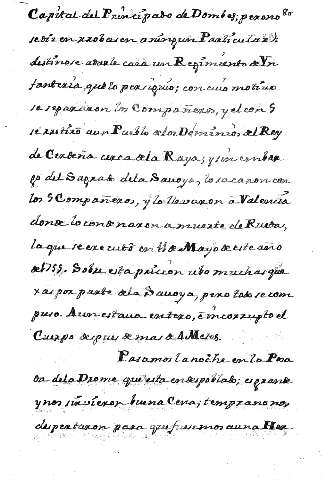 Capital del Principado de Dombes; pero no 80
se dió en rrobas en a ningun Particular. El
destinose a darle caza un Regimiento de Yn
fanteria, que lo persiguio; con cuio motivo
se separaron los Compañeros, y el con 5
se retiró a un Pueblo de los Dominios del Rey
de Cerdeña cerca de la Raya; y sin embar
go del Sagrado de la Savoya, lo sacaron con
los 5 Compañeros, y lo llevaron a Valencia
donde lo condenaron a muerte de Rueda,
la que se executó en de Mayo de este año
de 1755. Sobre esta pricion ubo muchas que
xas por parte de la Savoya, pero todo se com
puso. Aun estava entero, è incorrupto el
Cuerpo despues de mas de 4 Meses.
Pasamos la noche en la Posa
da de la Drome que esta en despoblado; es grande
y nos sirvieron buena Cena; temprano nos
despertaron para que fuesemos a una Her